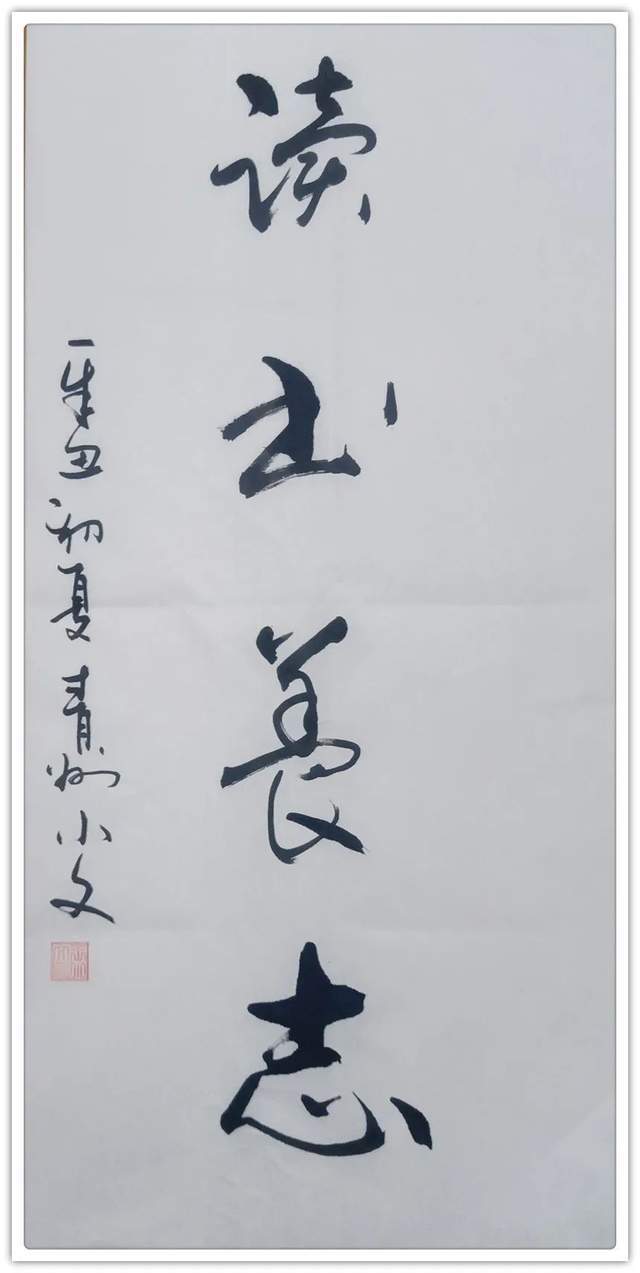 读书养志
辛丑初夏青州小文